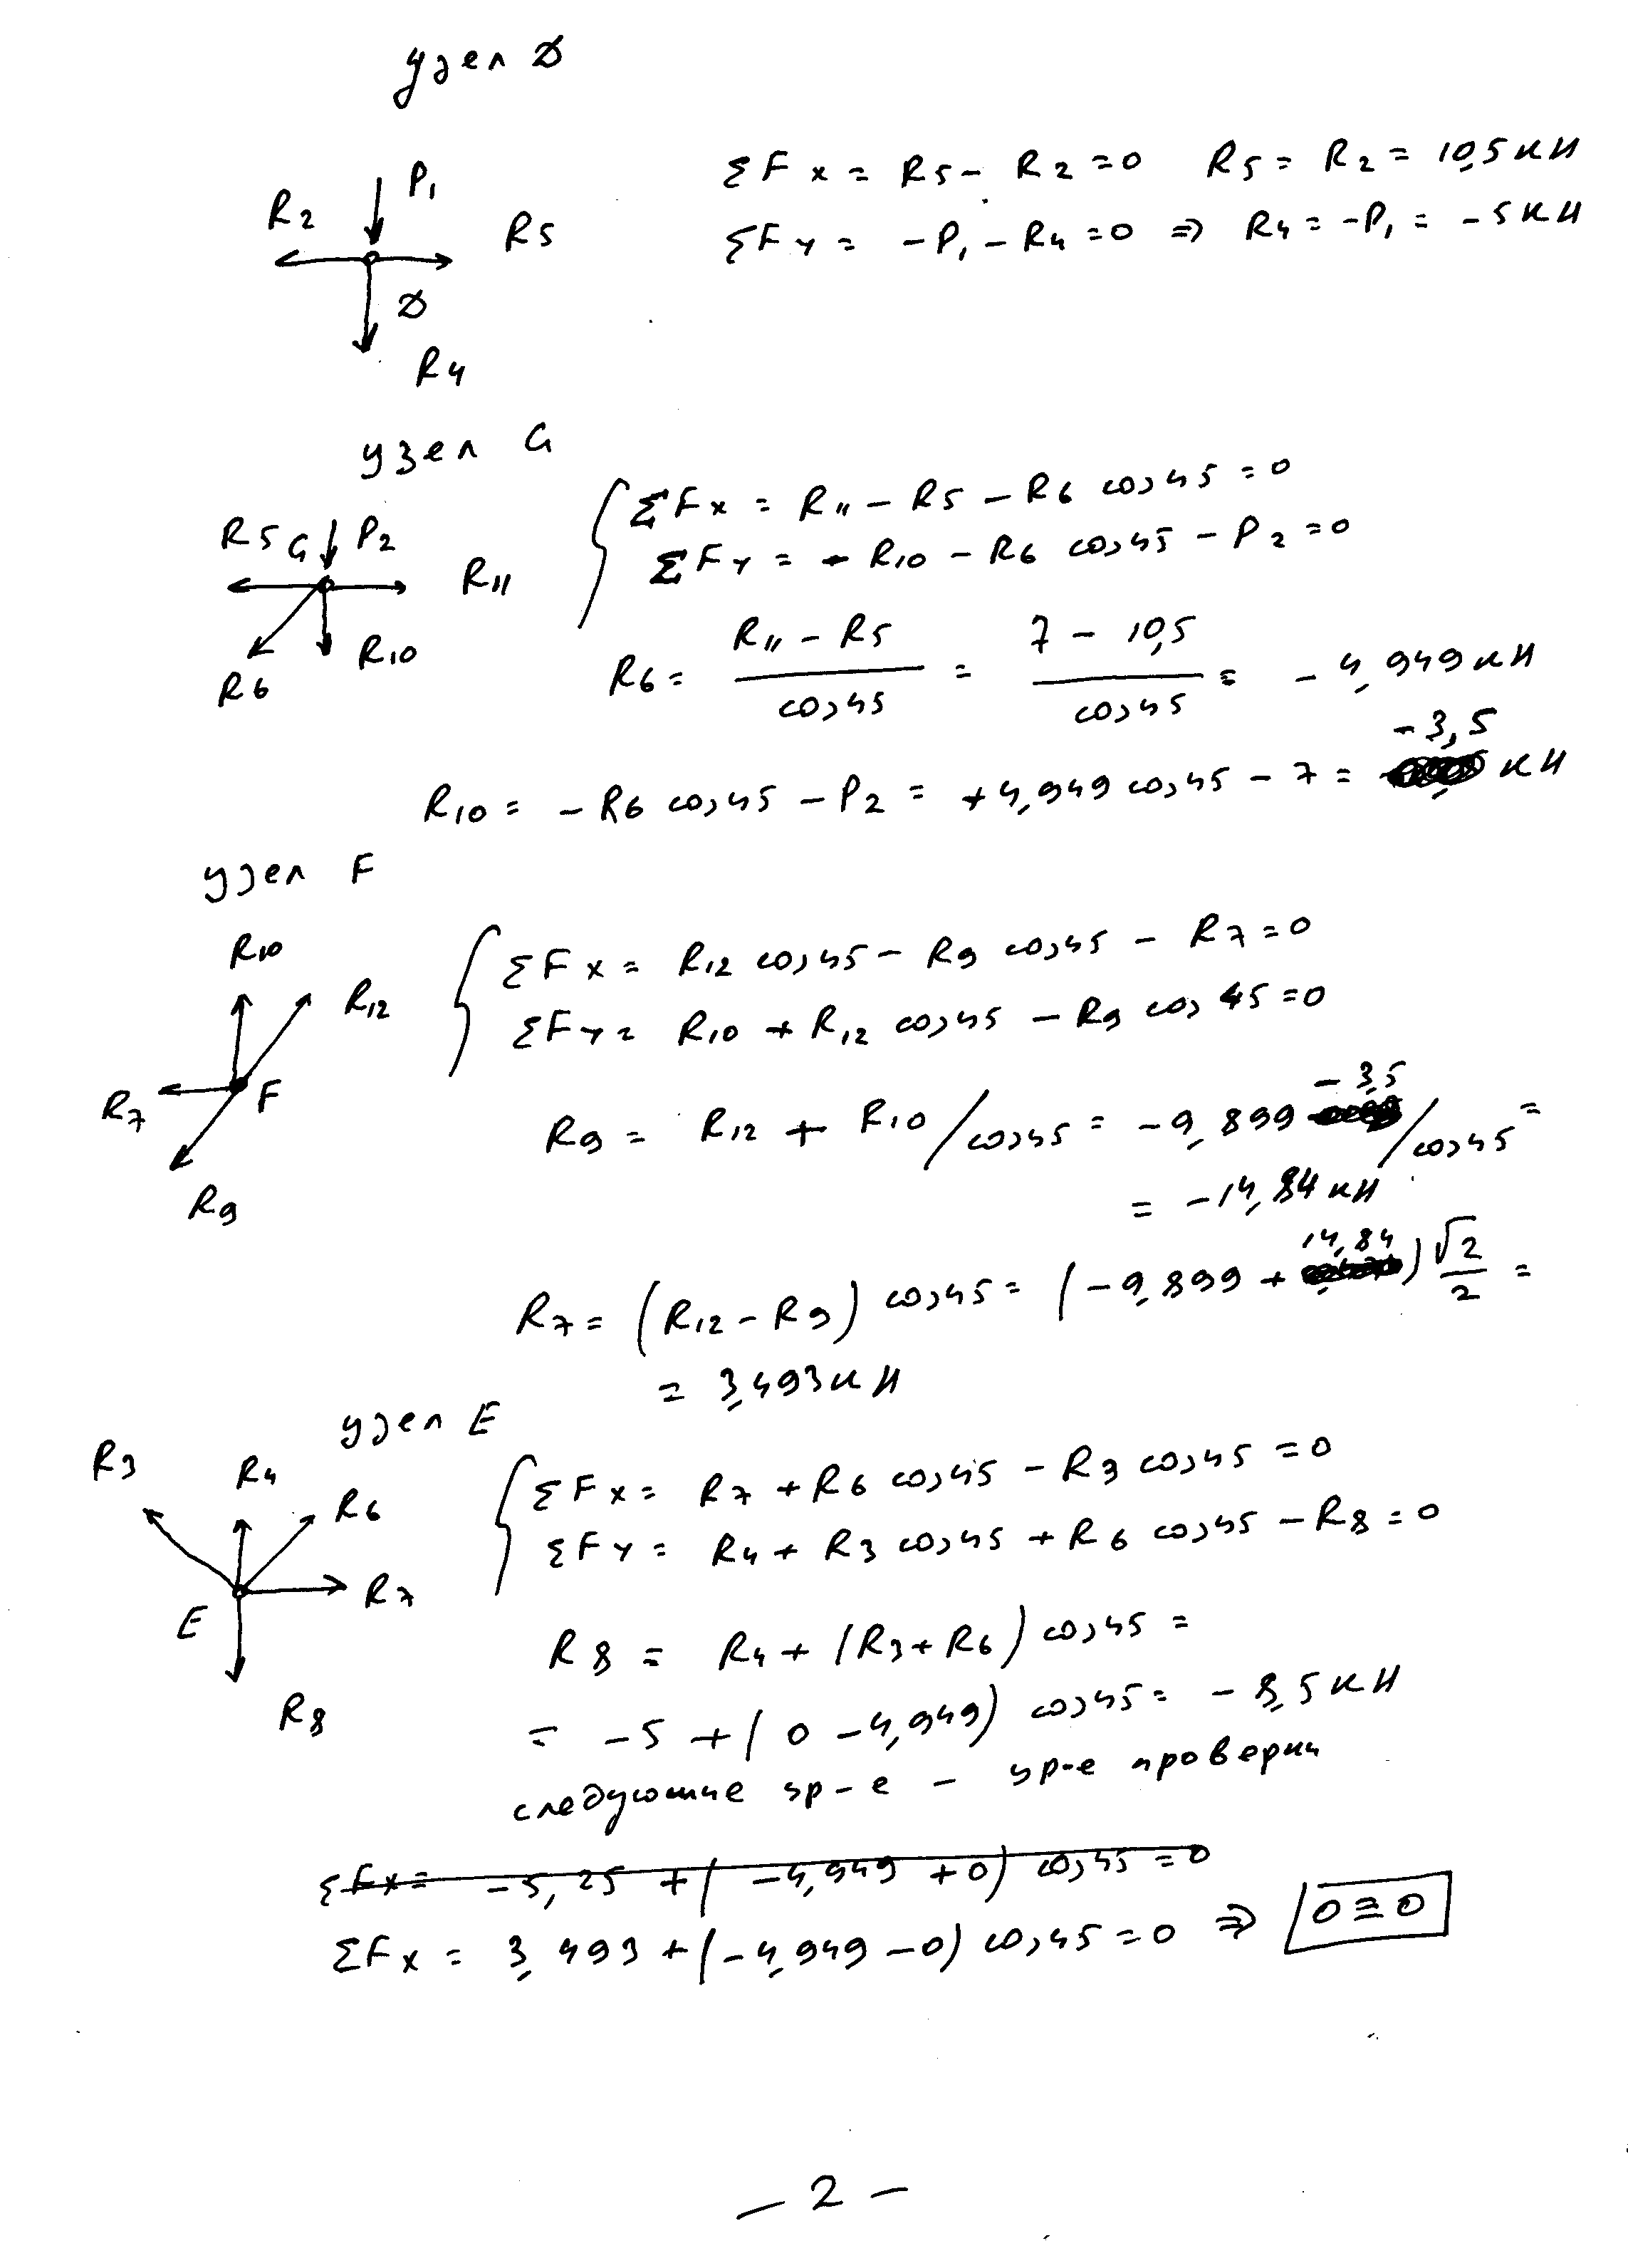 узел D
P₁
R₂
R₅
D
R₄
ΣFx = R₅ - R₂ = 0 R₅ = R₂ = 10,5 кН
ΣFy = -P₁ - R₄ = 0 ⇒ R₄ = -P₁ = -5 кН
узел G
R₅ G P₂
R₁₁
R₁₀
R₆
ΣFx = R₁₁ - R₅ - R₆ cos45 = 0
ΣFy = - R₁₀ - R₆ cos45 - P₂ = 0
R₆ = (R₁₁ - R₅)/cos45 = (7 - 10,5)/cos45 = -4,949 кН
R₁₀ = - R₆ cos45 - P₂ = +4,949 cos45 - 7 = -3,5 кН
узел F
R₁₀
R₁₂
R₇
F
R₉
ΣFx = R₁₂ cos45 - R₉ cos45 - R₇ = 0
ΣFy = R₁₀ + R₁₂ cos45 - R₉ cos 45 = 0
R₉ = R₁₂ + R₁₀/cos45 = -9,899 - 3,5/cos45 =
= -14,84 кН
R₇ = (R₁₂ - R₉) cos45 = (-9,899 + 14,84) √2/2 =
= 3,493 кН
узел E
R₃
R₄
R₆
R₇
E
R₈
ΣFx = R₇ + R₆ cos45 - R₃ cos45 = 0
ΣFy = R₄ + R₃ cos45 + R₆ cos45 - R₈ = 0
R₈ = R₄ + (R₃ + R₆) cos45 =
= -5 + (0 - 4,949) cos45 = -8,5 кН
следующие ур-е - ур-е проверки
ΣFx = -5,25 + (-4,949 + 0) cos45 = 0
ΣFx = 3,493 + (-4,949 - 0) cos45 = 0 ⇒ 0 ≡ 0
- 2 -